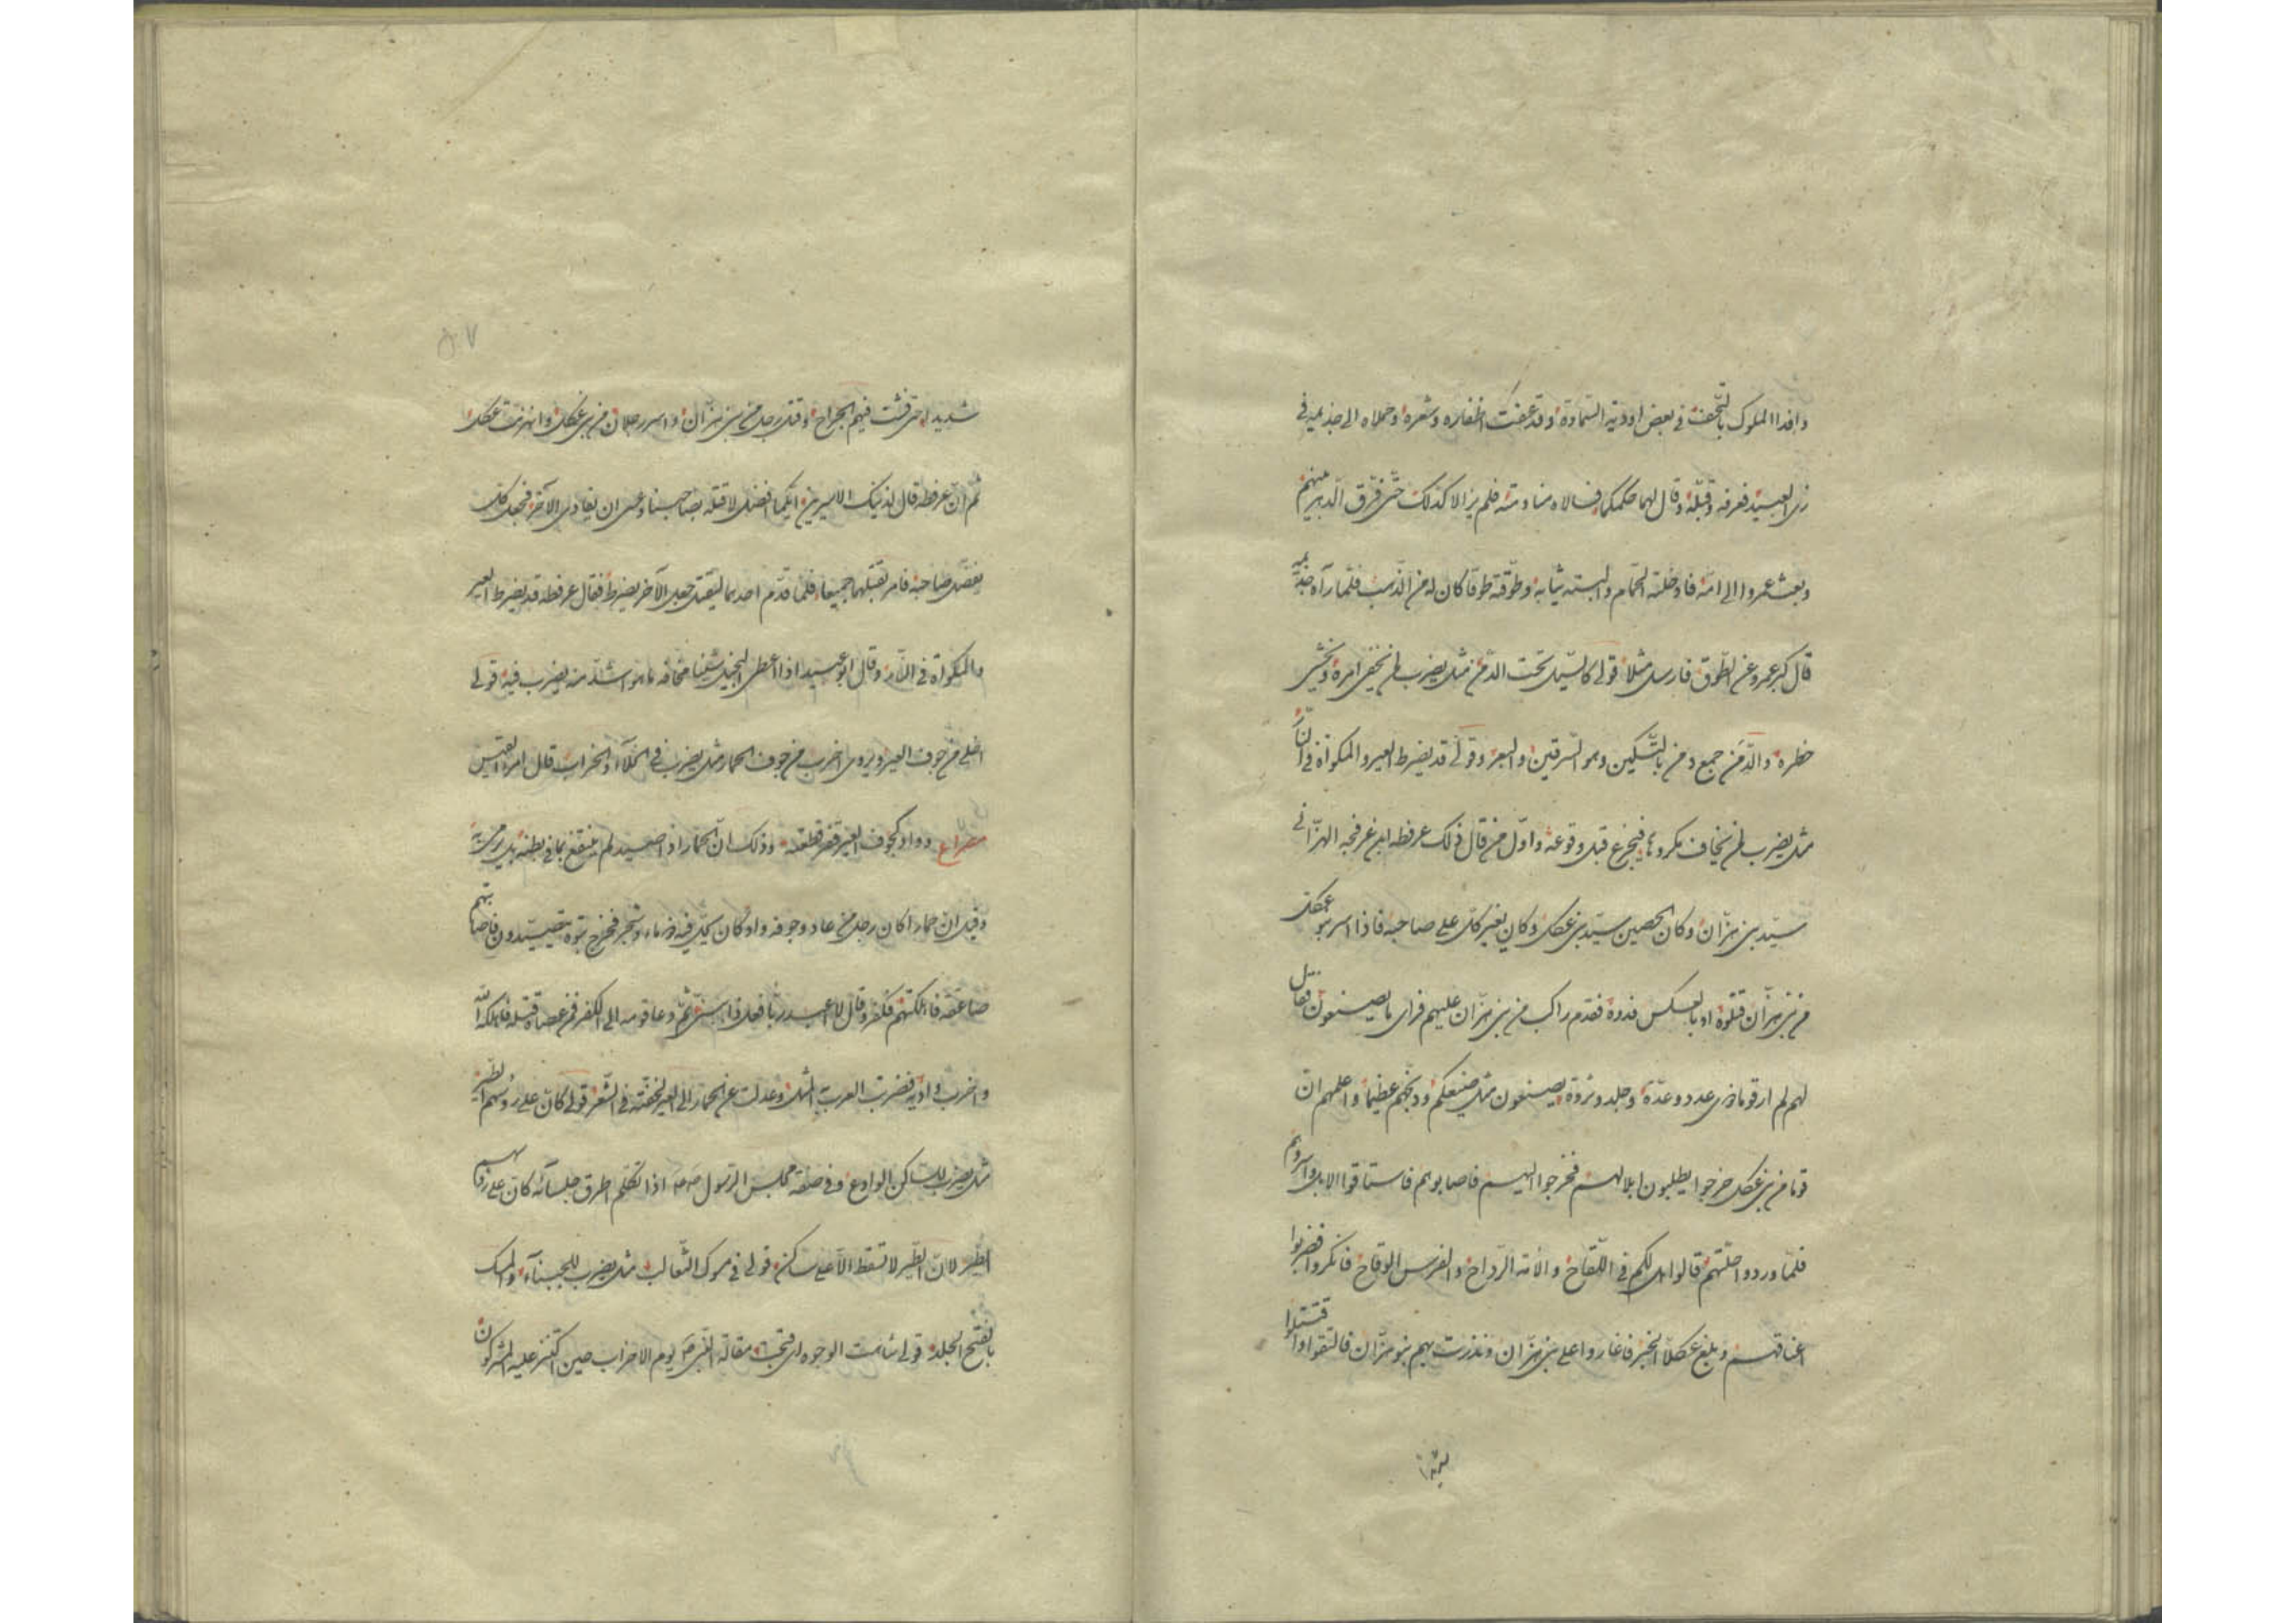 وافدا الملوك بالتحف في بعض اودية السماوة وقد عفت اظفاره وشعره وحملاه الى جذيمة في
زى العبيد فعرفه وقبّله وقال لهما حكمكما فسالاه منادمته فلم يزالا كذلك حتّى فرّق الدّهر بينهم
وبعث عمروا الى امّه فادخلته الحمّام والبسته ثيابه وطوّقته طوقا كان له من الذّهب فلمّا رآه جذيمة
قال كبر عمرو عن الطّوق فارسل مثلا قولى كالسّيل تحت الدّمن مثل يضرب لمن يخفى امره ويخشى
خطره والدّمن جمع دمن بالتّسكين وهو السّرقين والبعر وقولى قد يضرط العير والمكواة في النّار
مثل يضرب لمن يخاف مكروها فيجزع قبل وقوعه واوّل من قال ذلك عرفطه ابن عرفجه الهزّانى
سيّد بنى هزّان وكان الحصين سيّد بنى عكل وكان يغير كلّ على صاحبه فاذا اسر بنو عكل
من بنى هزّان قتلوه او بالعكس فدوه فقدم راكب من بنى هزّان عليهم فراى ما يصنعون فقال
لهم لم ار قوما ذى عدد وعدّة وجلد وثروة يصنعون مثل صنيعكم ووبّخهم عظيما واعلمهم انّ
قوما من بنى عكل خرجوا يطلبون ابلا لهم فخرجوا اليهم فاصابوهم فاستاقوا الابل واسروهم
فلمّا وردوا حلّتهم قالوا هل لكم في اللّقاح والامة الرّداح والفرس الوقاح فانكروا فضربوا
اعناقهم وبلغ عكلا الخبر فاغاروا على بنى هزّان ونذرت بهم بنو هزّان فالتقوا واقتتلوا
شديدا حتى فشت فيهم الجراح وقتل رجل من بنى هزّان واسر رجلان من بنى عكل وانهزمت عكل
ثم انّ عرفطه قال لذينك الاسيرين ايّكما افضل لاقتله بصاحبنا وعسى ان يفادى الآخر فجعل كل
يفضّل صاحبه فامر بقتلهما جميعا فلمّا قدّم احدهما ليقتل جعل الآخر يضرط فقال عرفطه قد يضرط العير
والمكواة في النّار وقال ابو عبيد اذا اعطى البخيل شيئا مخافه ما هو اشدّ منه يضرب فيه قولى
اخلى من جوف العير ويروى اخرب من جوف الحمار مثل يضرب في الخلآء والخراب قال امرء القيس
مصراع وواد كجوف العير قفر قطعته وذلك انّ الحمار اذا صيد لم ينتفع بما في بطنه بل يرمى به
وقيل انّ حمارا كان رجل من عاد وجوفه واد كان يحلّ فيه ذو ماء وشجر فخرج بنوه يتصيّدون فاصابتهم
صاعقه فاهلكتهم فكفر وقال لا اعبد ربّا فعل ذا ببنىّ ثمّ دعا قومه الى الكفر فمن عصاه قتله فاهلكه الله
واخرب واديه فضربت العرب المثل وعدلت عن الحمار الى العير لخفّته في الشّعر قولى كانّ على رؤسهم الطّير
مثل يضرب للساكن الوادع وفي صفة مجلس الرّسول صه اذا تكلّم اطرق جلسآئه كانّ على رؤسهم
الطّير لانّ الطّير لا تسقط الاّ على ساكن قولى في مسوك الثّعالب مثل يضرب للجبنآء والمسك
بالفتح الجلد قولى شاهت الوجوه اى قبحت مقالة النّبى ص يوم الاحزاب حين اكثر عليه المشركون